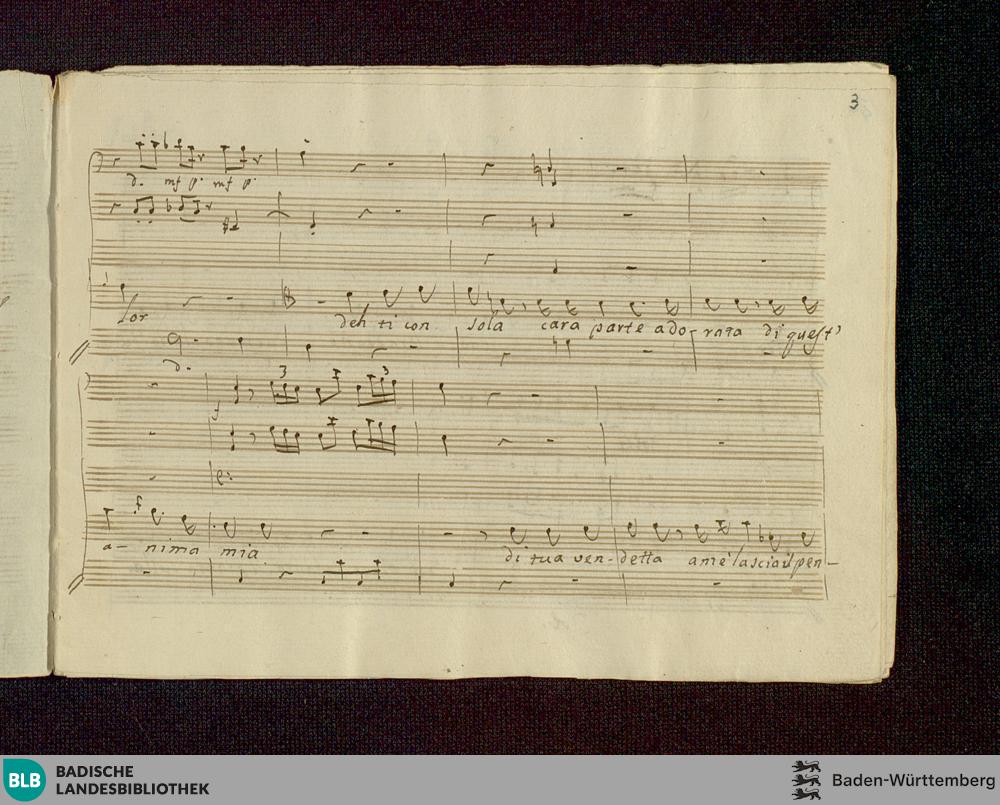 3
d. mf p. mf p.
lor deh ti con sola cara parte ado rata di quest'
d.
3 3
f
f
a- nima mia di tua ven- detta a me lascia il pen-
BLB BADISCHE LANDESBIBLIOTHEK
Baden-Württemberg